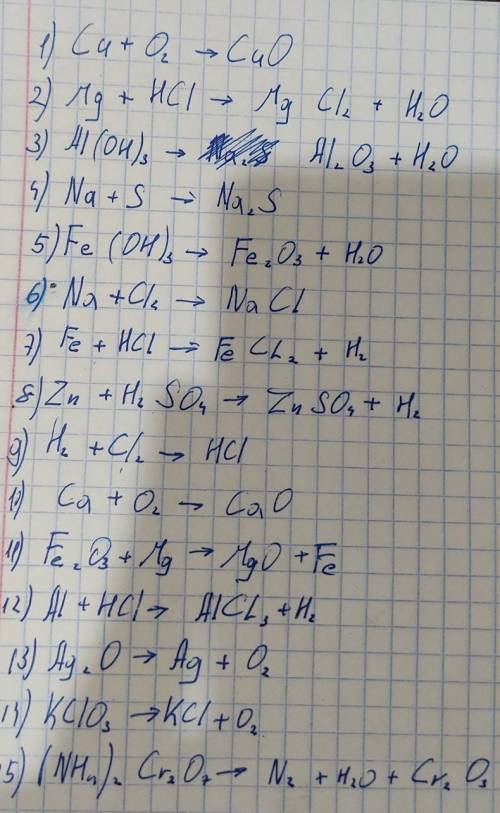 1) Cu + O₂ → CuO
2) Mg + HCl → Mg Cl₂ + H₂O
3) Al(OH)₃ → Al₂O₃ + H₂O
4) Na + S → Na₂S
5) Fe (OH)₃ → Fe₂O₃ + H₂O
6) Na + Cl₂ → NaCl
7) Fe + HCl → Fe CL₂ + H₂
8) Zn + H₂ SO₄ → Zn SO₄ + H₂
9) H₂ + Cl₂ → HCl
10) Ca + O₂ → CaO
11) Fe₂O₃ + Mg → MgO + Fe
12) Al + HCl → AlCL₃ + H₂
13) Ag₂O → Ag + O₂
14) KClO₃ → KCl + O₂
5) (NH₄)₂ Cr₂O₇ → N₂ + H₂O + Cr₂ O₃